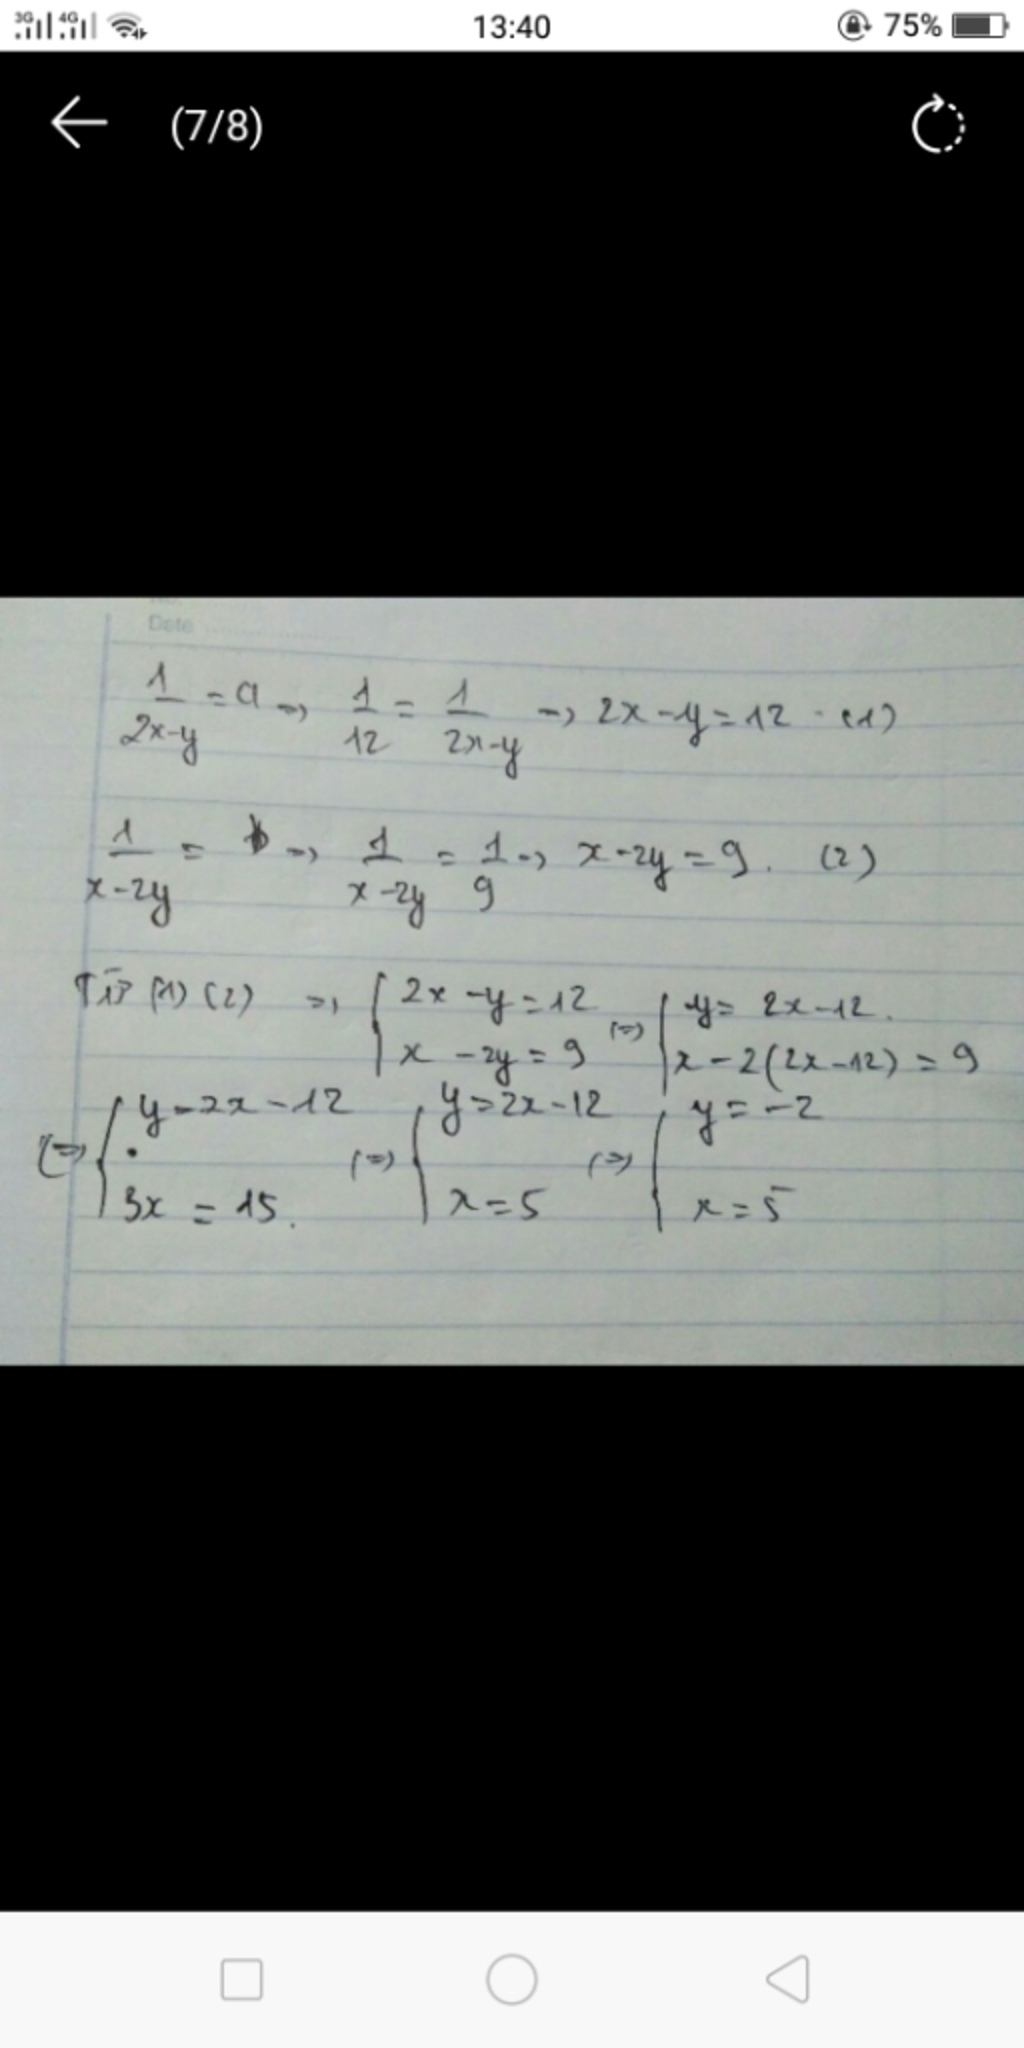 3G 4G 13:40 75%
(7/8)
No.
Date
1/(2x-y) = a => 1/12 = 1/(2x-y) => 2x-y=12 (1)
1/(x-2y) = b => 1/(x-2y) = 1/9 => x-2y=9. (2)
Từ (1) (2) => { 2x-y=12 (=>) { y= 2x-12.
x-2y=9 x-2(2x-12)=9
(=>) { y=2x-12 (=>) { y=2x-12 (=>) { y=-2
3x=15. x=5 x=5